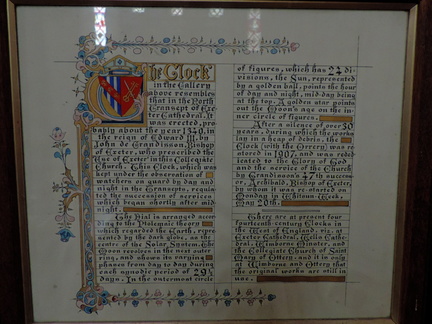 The Clock
in the Gallery
above resembles
that in the North
Transept of Exe-
ter Cathedral. It
was erected, pro-
bably about the year 1340, in
the reign of Edward III. by
John de Grandisson, Bishop
of Exeter, who prescribed the
Use of Exeter in this Collegiate
Church. This Clock, which was
kept under the observation of
watchers on guard by day and
night in the Transepts, regula-
ted the succession of services
which began shortly after mid-
night.
The Dial is arranged accor-
ding to the Ptolemaic theory
which regarded the Earth, repre-
sented by the dark globe, as the
centre of the Solar System. The
Moon revolves in the next outer
ring, and shows its varying
phases from day to day during
each synodic period of 29½
days. In the outermost circle
of figures, which has 24 di-
visions, the Sun, represented
by a golden ball, points the hour
of day and night, mid-day being
at the top. A golden star points
out the Moon's age on the in-
ner circle of figures.
After a silence of over 30
years, during which the works
lay in a heap of debris, the
Clock (with the Orrery) was re-
stored in 1907, and was reded-
icated to the Glory of God
and the service of the Church
by Grandisson's 47th success-
or, Archibald, Bishop of Exeter
by whom it was re-started on
Monday in Whitsun Week,
May 20th.
There are at present four
fourteenth century Clocks in the
West of England, viz. at
Exeter Cathedral, Wells Cathe-
dral, Wimborne Minster, and
the Collegiate Church of Saint
Mary of Ottery, and it is only
at Wimborne and Ottery that
the original works are still in
use.